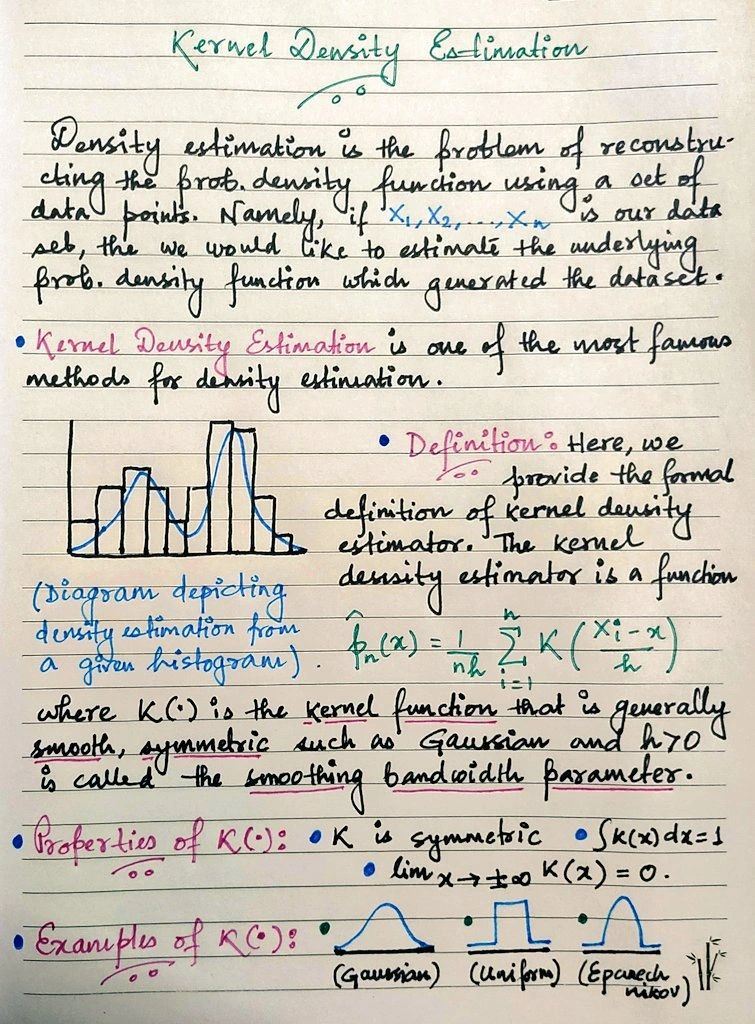 Kernel Density Estimation
Density estimation is the problem of reconstru-
cting the prob. density function using a set of
data points. Namely, if X₁, X₂, ..., Xₙ is our data
set, the we would like to estimate the underlying
prob. density function which generated the dataset.
• Kernel Density Estimation is one of the most famous
methods for density estimation.
• Definition: Here, we
provide the formal
definition of kernel density
estimator. The kernel
density estimator is a function
(Diagram depicting
density estimation from
a given histogram).
p̂ₙ(x) = 1/nh Σⁿᵢ₌₁ K((Xᵢ - x)/h)
where K(·) is the kernel function that is generally
smooth, symmetric such as Gaussian and h>0
is called the smoothing bandwidth parameter.
• Properties of K(·): • K is symmetric • ∫K(x)dx=1
• lim x→±∞ K(x) = 0.
• Examples of K(·):
(Gaussian) (Uniform) (Epanech
nikov)